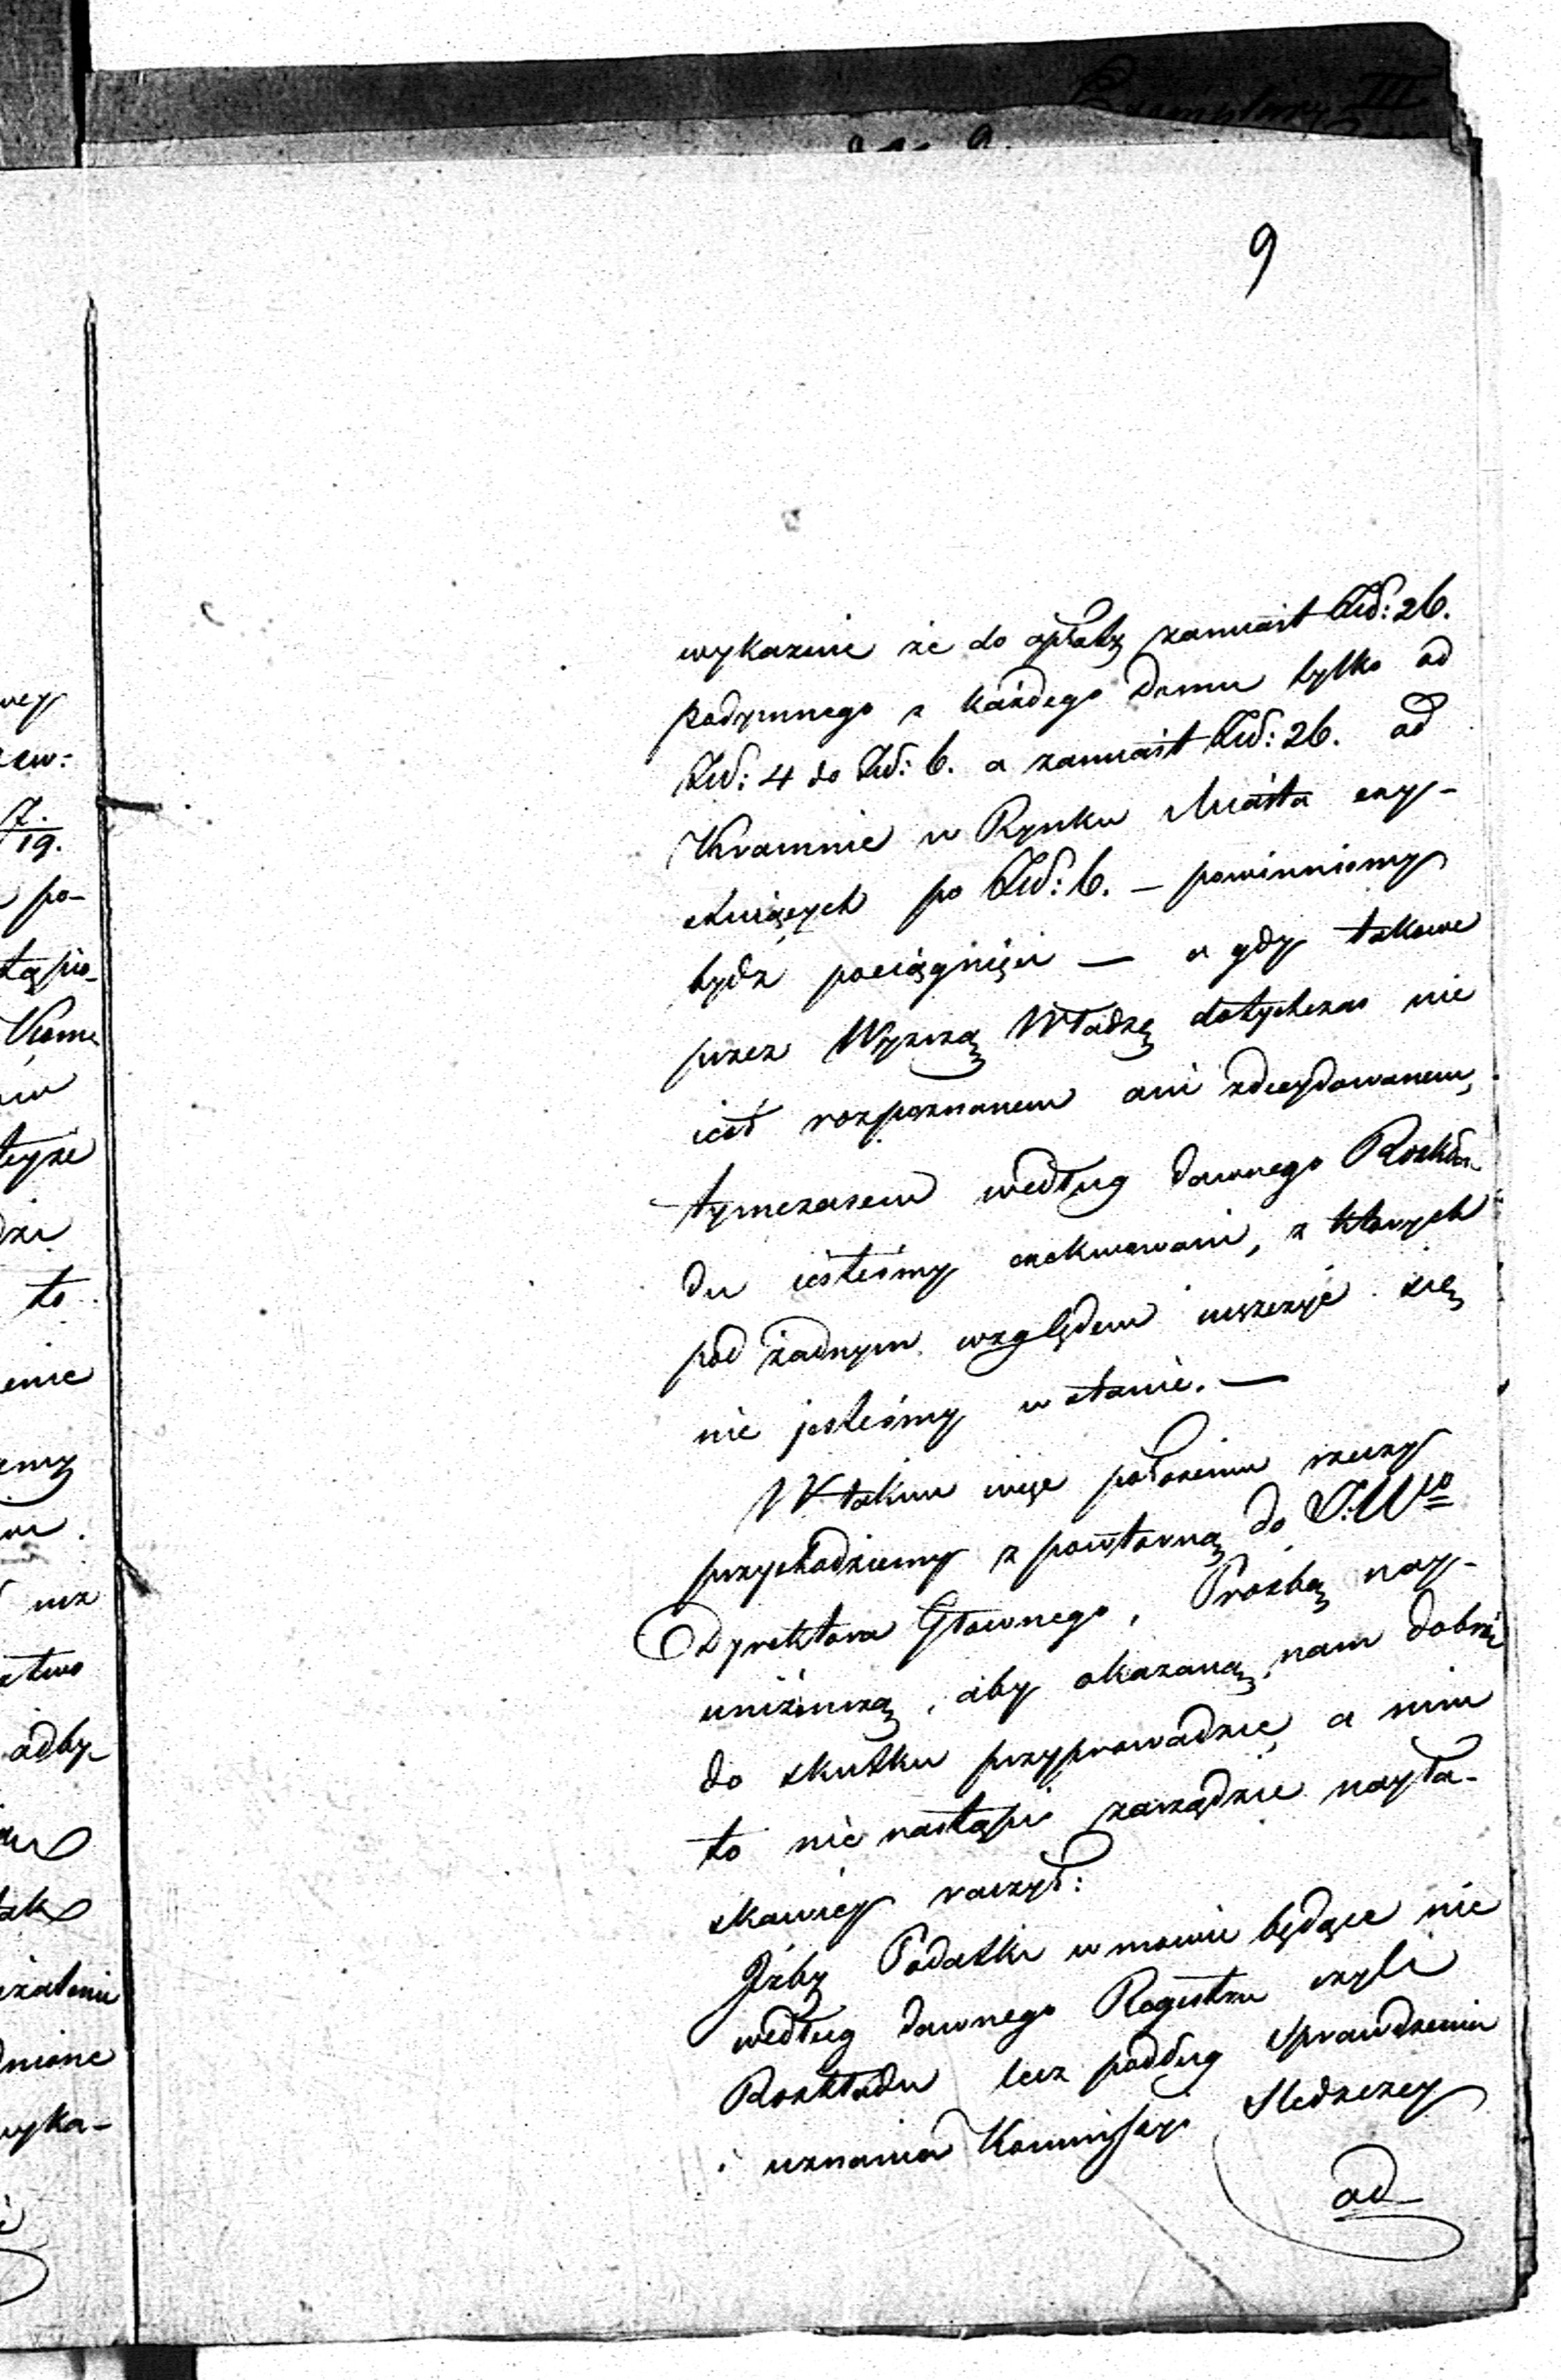 9
wykazuie że do opłaty zamiast Złł: 26.
Podymnego z każdego Domu tylko od
Złł: 4 do Złł: 6. a zamiast Złł: 26. od
Kramnic w Rynku Miasta exy-
stuiących po Złł: 6. — powinniśmy
bydź pociągnięci — a gdy takowe
przez Wyższą Władzę dotychczas nie
iest rozpoznanem ani zdecydowanem,
tymczasem według dawnego Rozkła-
du iesteśmy exekwowani, z których
pod żadnym względem uiszczyć się
nie jesteśmy w stanie. —
W takim więc położeniu rzeczy
przychodziemy z powtorną do J: W°
Dyrektora Głownego, Prozbą nay-
uniżeńszą, aby okazaną nam dobroć
do skutku przyprowadzić, a nim
to nie nastąpi zarządzić nayła-
skawiey raczył:
Jżby Podatki w mowie będące nie
według dawnego Regestru czyli
Rozkładu lecz podług Sprawdzenia
i uznania Kommissyi Sledczey
od
wey
7.
19.
po-
tąpio-
to
odby-
wyka-